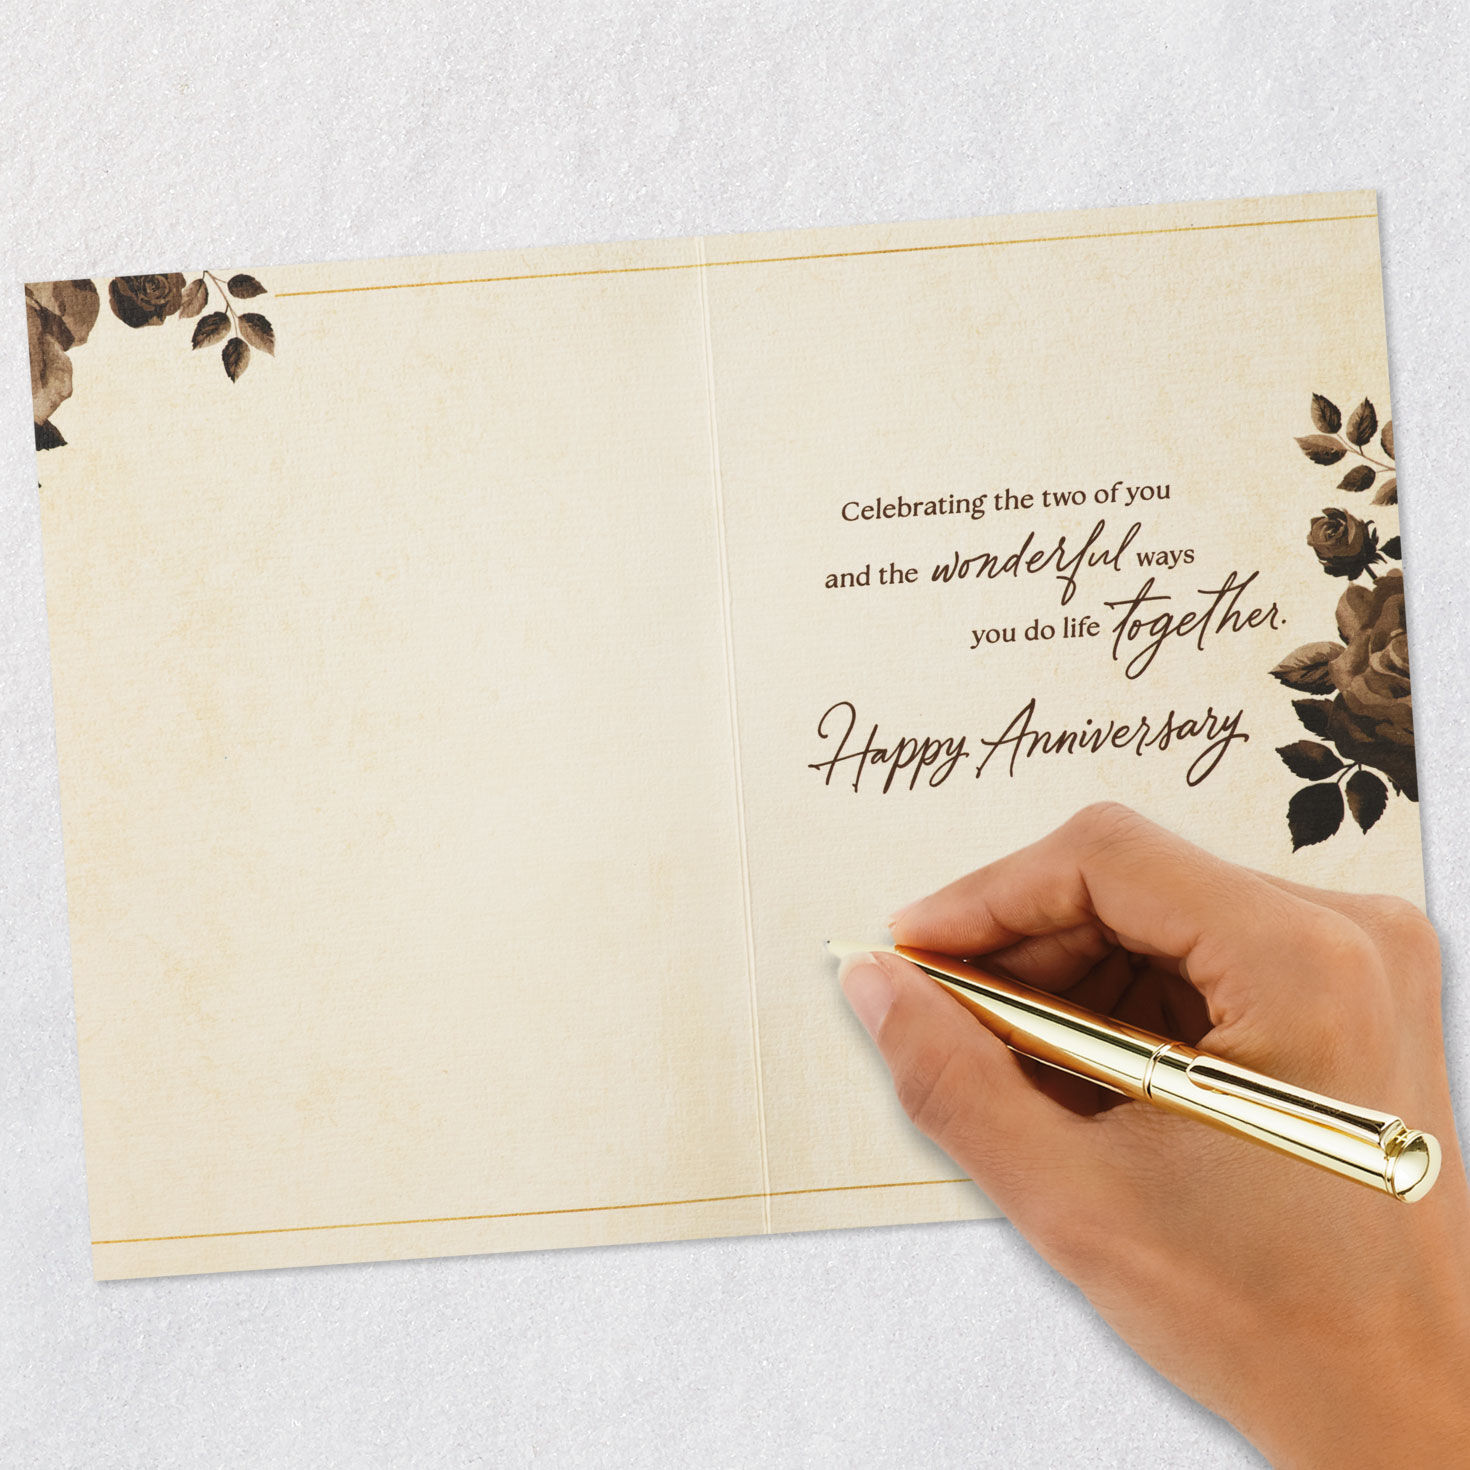 Celebrating the two of you
and the wonderful ways
you do life together.
Happy Anniversary